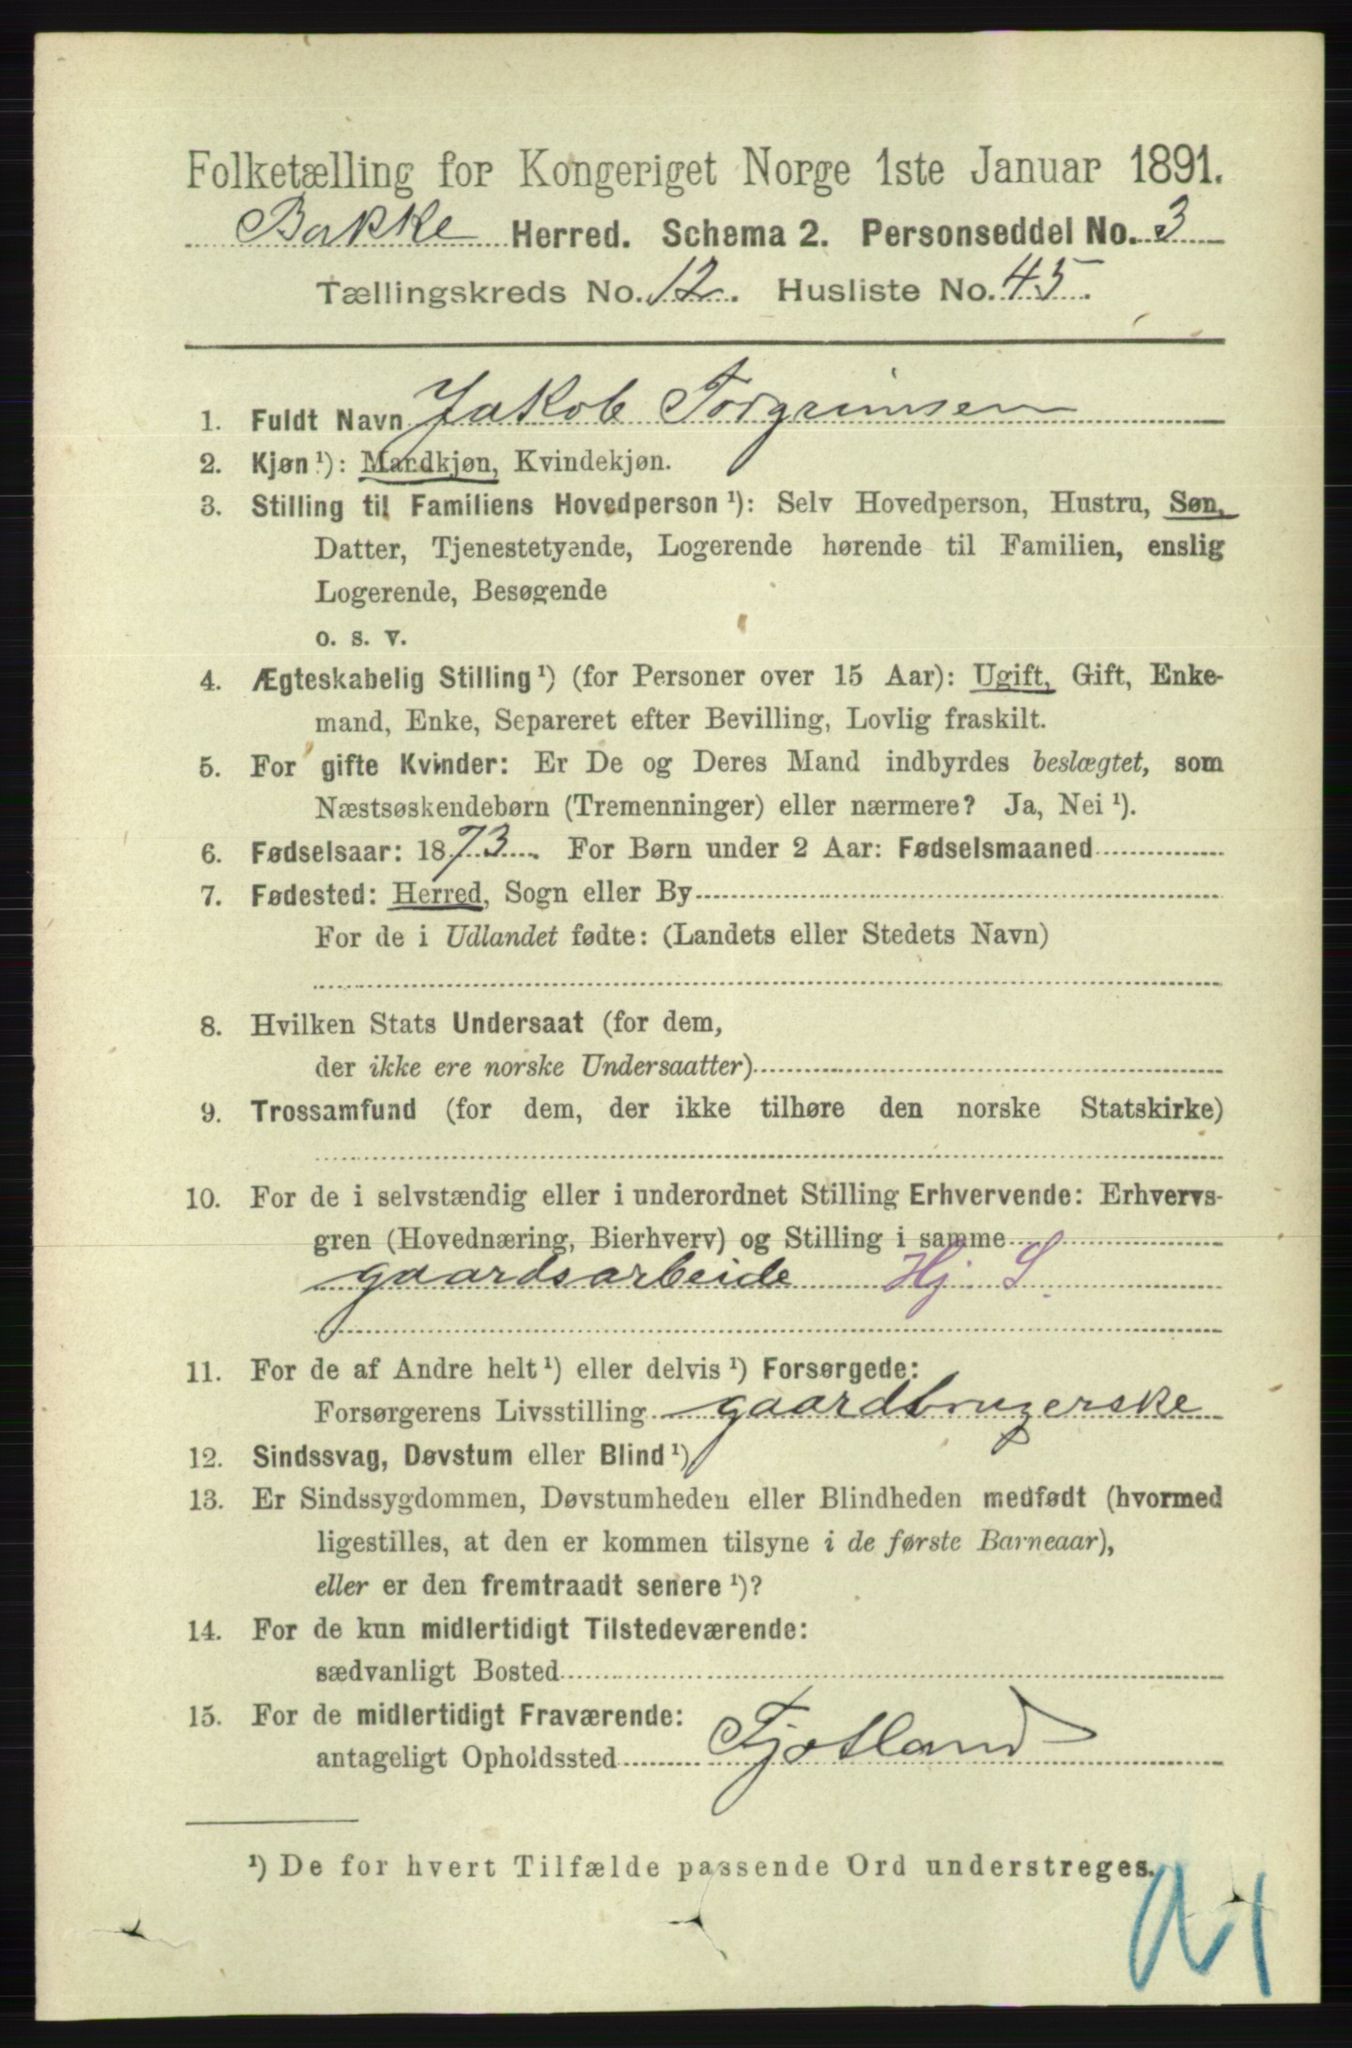 Folketælling for Kongeriget Norge 1ste Januar 1891.
Bakke Herred. Schema 2. Personseddel No. 3
Tællingskreds No. 12. Husliste No. 45.
1. Fuldt Navn Jakob Torgrimsen
2. Kjøn ¹): Mandkjøn, Kvindekjøn.
3. Stilling til Familiens Hovedperson ¹): Selv Hovedperson, Hustru, Søn,
Datter, Tjenestetyende, Logerende hørende til Familien, enslig
Logerende, Besøgende
o. s. v.
4. Ægteskabelig Stilling ¹) (for Personer over 15 Aar): Ugift, Gift, Enke-
mand, Enke, Separeret efter Bevilling, Lovlig fraskilt.
5. For gifte Kvinder: Er De og Deres Mand indbyrdes beslægtet, som
Næstsøskendebørn (Tremenninger) eller nærmere? Ja, Nei ¹).
6. Fødselsaar: 1873. For Børn under 2 Aar: Fødselsmaaned
7. Fødested: Herred, Sogn eller By
For de i Udlandet fødte: (Landets eller Stedets Navn)
8. Hvilken Stats Undersaat (for dem,
der ikke ere norske Undersaatter)
9. Trossamfund (for dem, der ikke tilhøre den norske Statskirke)
10. For de i selvstændig eller i underordnet Stilling Erhvervende: Erhvervs-
gren (Hovednæring, Bierhverv) og Stilling i samme
gaardsarbeide Hj. S.
11. For de af Andre helt ¹) eller delvis ¹) Forsørgede:
Forsørgerens Livsstilling gaardbrugerske
12. Sindssvag, Døvstum eller Blind ¹)
13. Er Sindssygdommen, Døvstumheden eller Blindheden medfødt (hvormed
ligestilles, at den er kommen tilsyne i de første Barneaar),
eller er den fremtraadt senere ¹)?
14. For de kun midlertidigt Tilstedeværende:
sædvanligt Bosted
15. For de midlertidigt Fraværende:
antageligt Opholdssted Fjotland
¹) De for hvert Tilfælde passende Ord understreges.